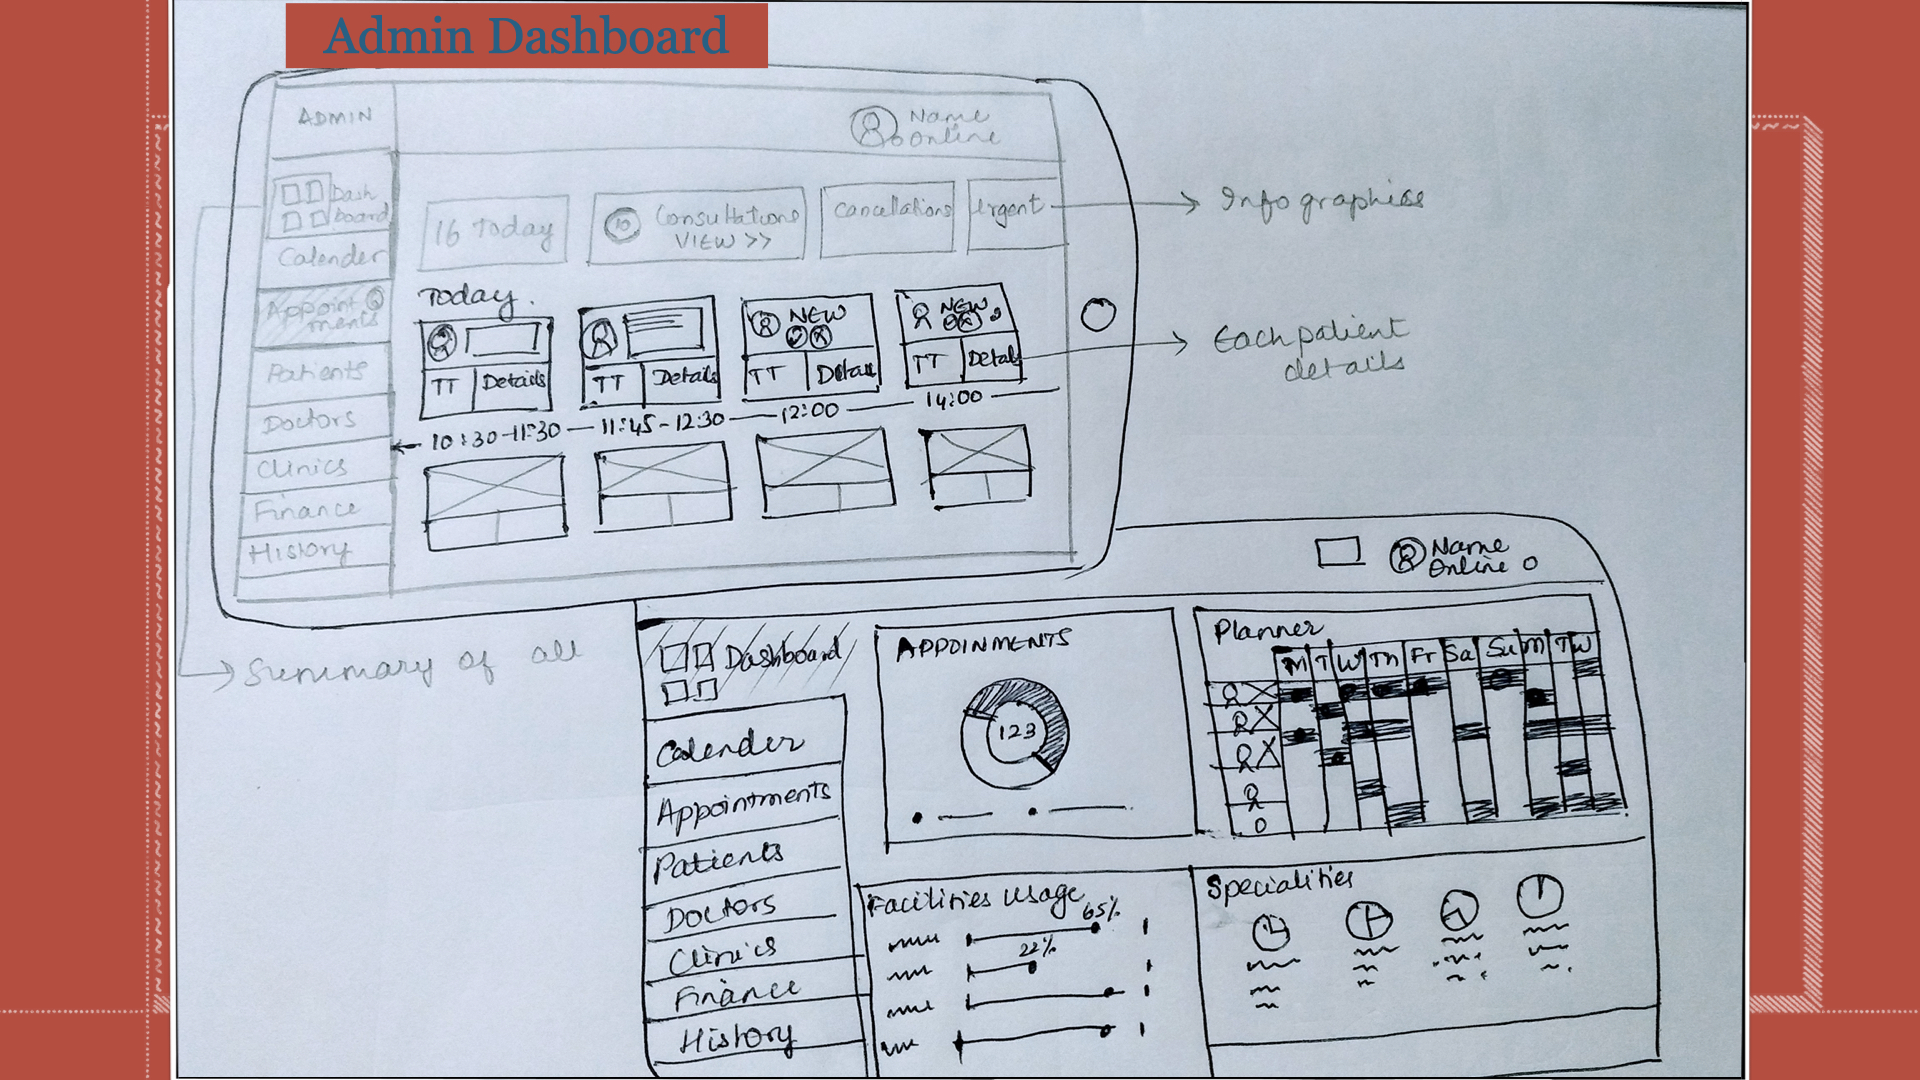 Admin Dashboard
ADMIN
Name
Online
Dash
board
Calender
Appoint
ments
Patients
Doctors
Clinics
Finance
History
16 Today
10 Consultations
VIEW >>
Cancellations
Urgent
Infographics
Today.
TT Details
TT Details
NEW
TT Detail
NEW
TT Details
Each patient
details
10:30-11:30 11:45-12:30 12:00 14:00
Summary of all
Name
Online
Dashboard
Calender
Appointments
Patients
Doctors
Clinics
Finance
History
APPOINMENTS
123
Planner
M T W Th Fr Sa Su M T W
Facilities Usage
65%
22%
Specialities